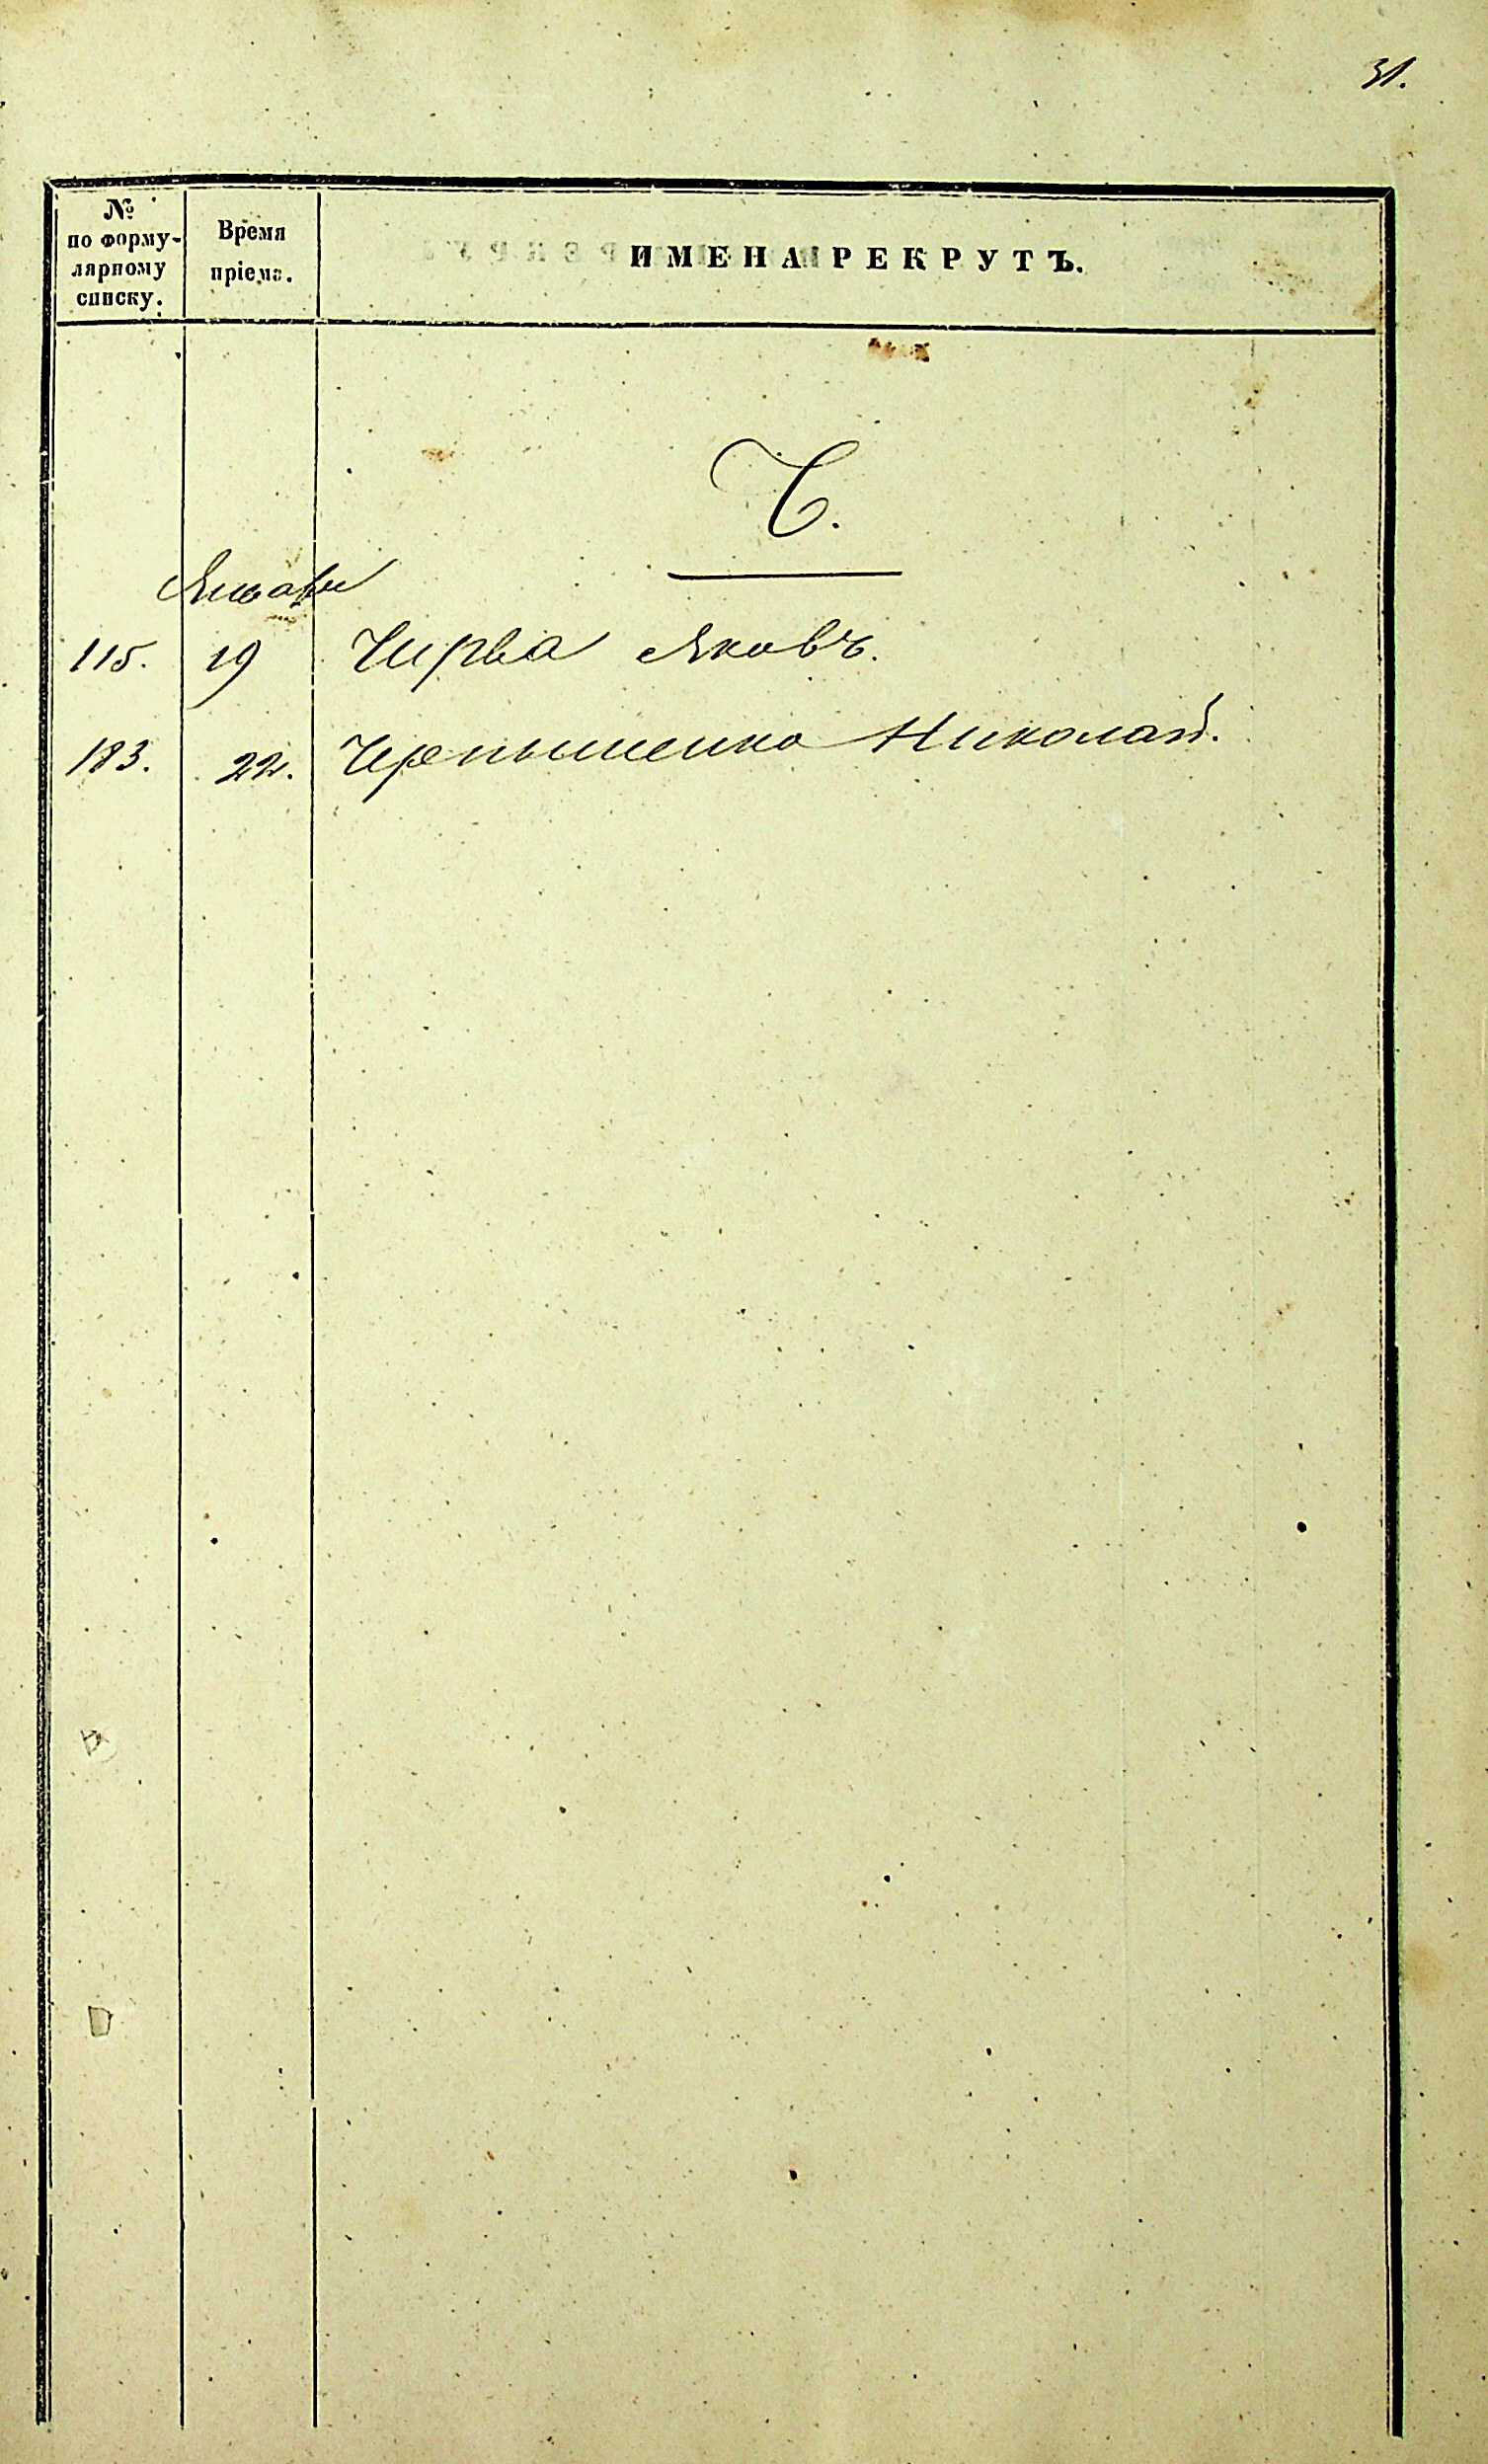 31.
№ по форму-лярному списку.
Время пріема.
ИМЕНА РЕКРУТЪ.
Ч.
Января
115. 19 Чирва Яковъ.
183. 22. Чернышенко Николай.